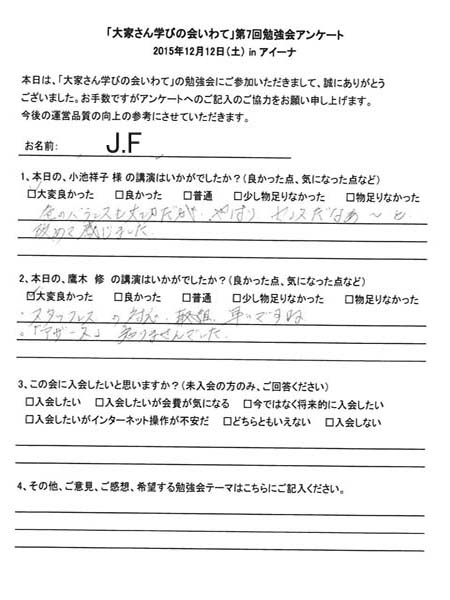 「大家さん学びの会いわて」第7回勉強会アンケート
2015年12月12日(土) in アイーナ
本日は、「大家さん学びの会いわて」の勉強会にご参加いただきまして、誠にありがとう
ございました。お手数ですがアンケートへのご記入のご協力をお願い申し上げます。
今後の運営品質の向上の参考にさせていただきます。
お名前: J.F
1、本日の、小池祥子 様 の講演はいかがでしたか?(良かった点、気になった点など)
☑大変良かった □良かった □普通 □少し物足りなかった □物足りなかった
色のバランスも大切だが、やはり センスだなぁ〜と
改めて感じました
2、本日の、鷹木 修 の講演はいかがでしたか?(良かった点、気になった点など)
☑大変良かった □良かった □普通 □少し物足りなかった □物足りなかった
・スタッフレス の対応・取組 早いですね
。「テザース」 知りませんでした。
3、この会に入会したいと思いますか?(未入会の方のみ、ご回答ください)
□入会したい □入会したいが会費が気になる □今ではなく将来的に入会したい
□入会したいがインターネット操作が不安だ □どちらともいえない □入会しない
4、その他、ご意見、ご感想、希望する勉強会テーマはこちらにご記入ください。